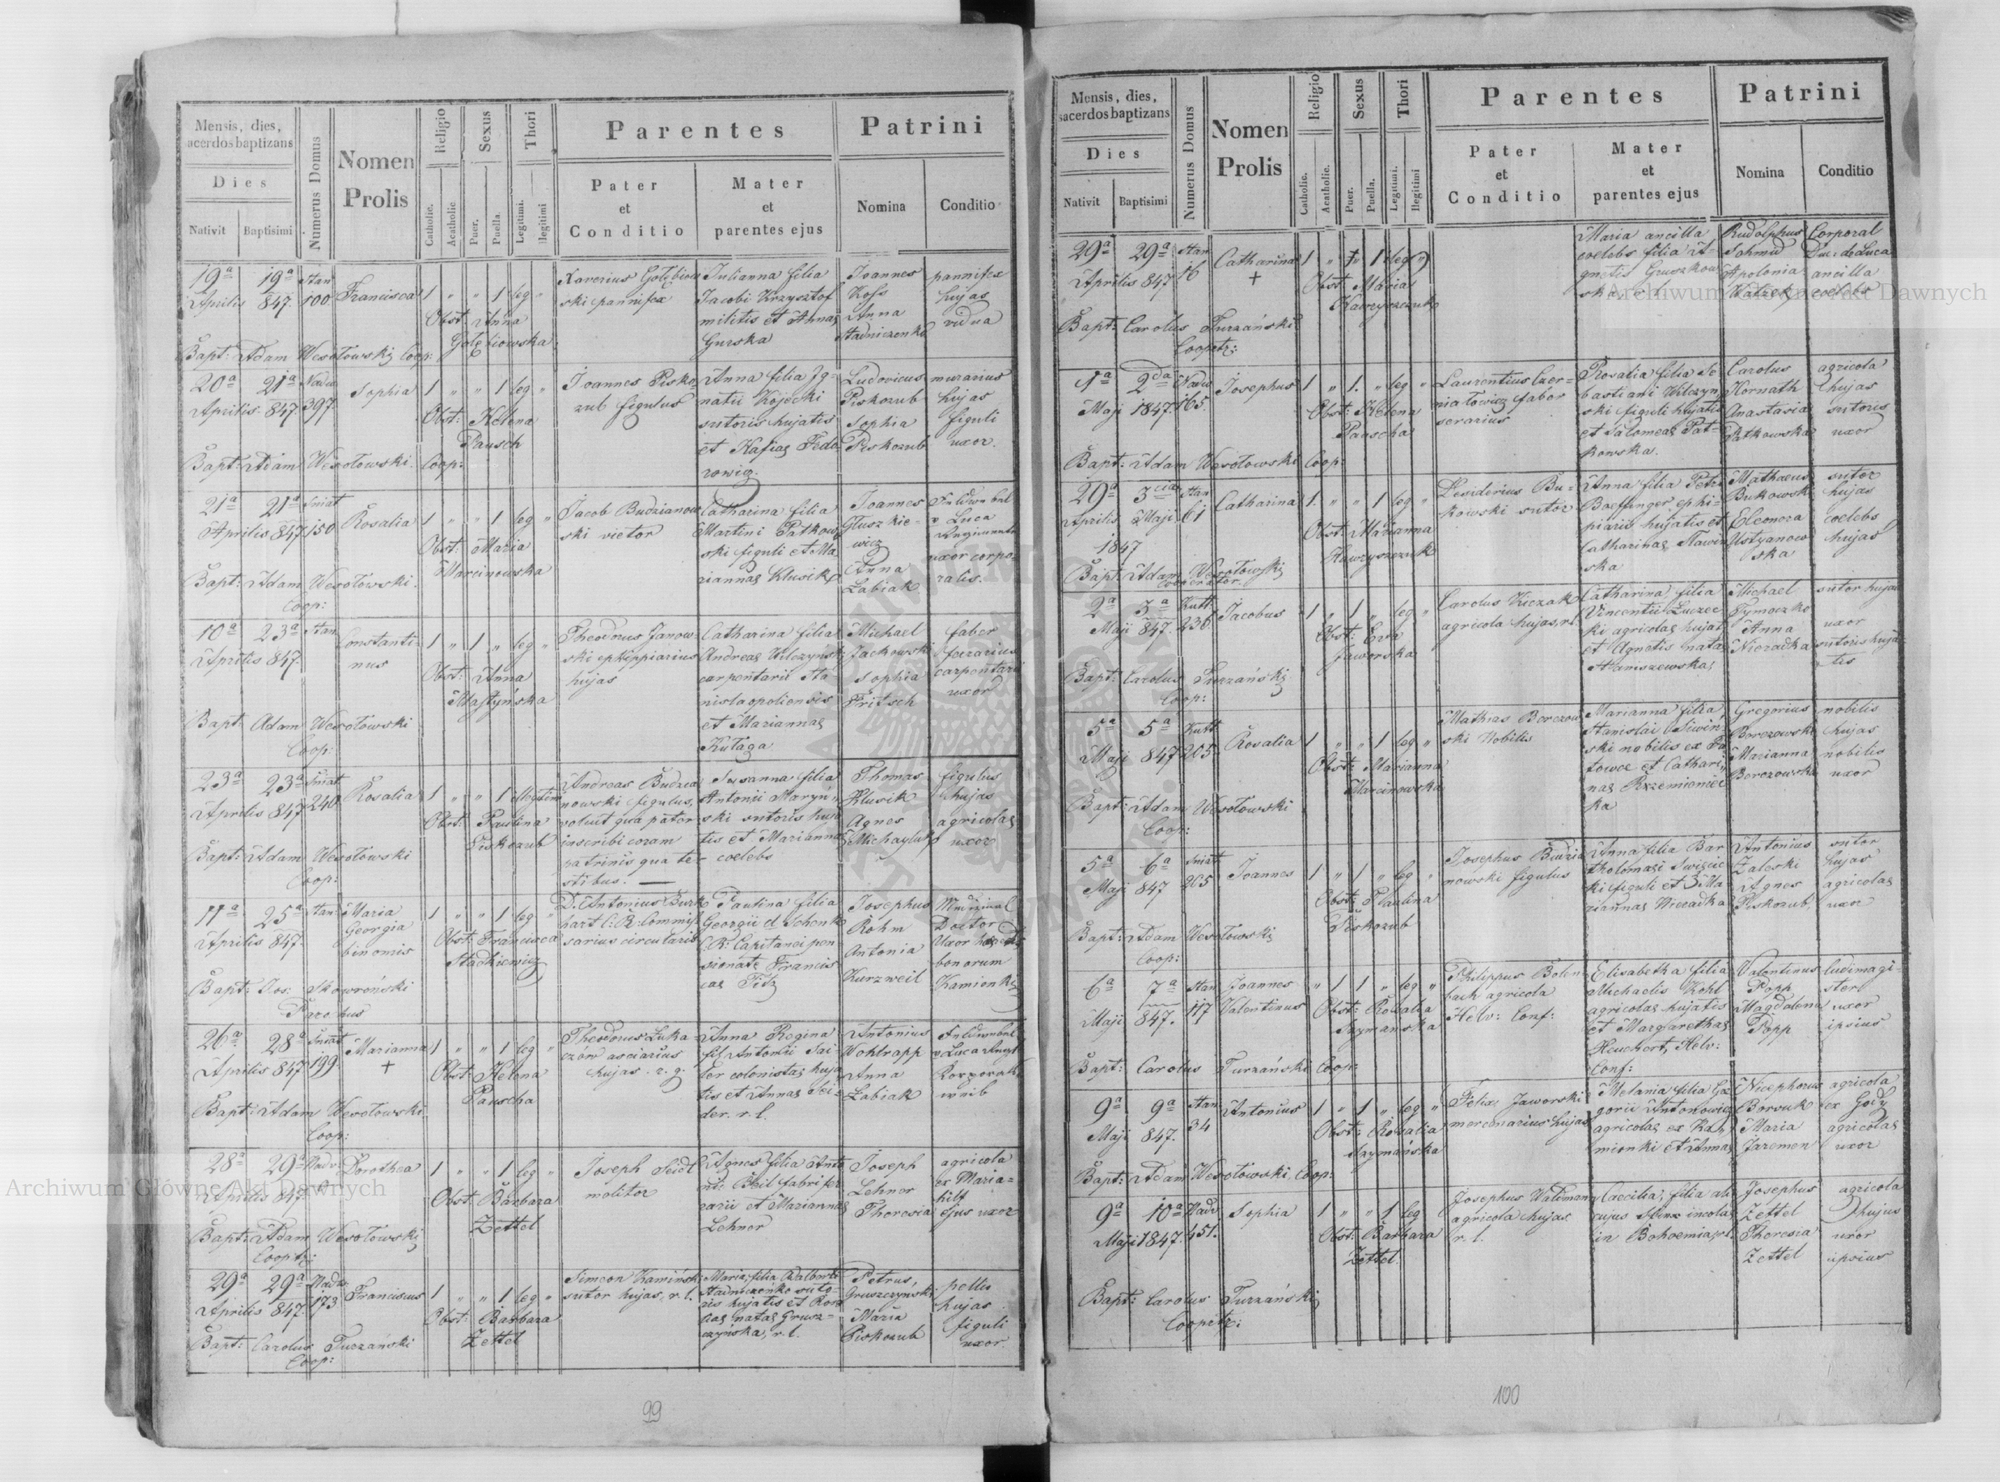 Mensis, dies,
sacerdos baptizans
Numerus Domus
Nomen
Prolis
Religio
Sexus
Thori
Parentes
Patrini
Dies
Nativit
Baptisimi
Catholic.
Acatholic
Puer.
Puella.
Legitimi.
Illegitimi
Pater
et
Conditio
Mater
et
parentes ejus
Nomina
Conditio
19a 19a Stan
Aprilis 847. 100 Francisca 1 " " 1 leg "
Obst: Anna
Gołębiowska
Xaverius Gołębiow
ski pannifex
Julianna filia
Jacobi Krzysztof
militis et Annae
Gurska
Joannes
Koss
Anna
Stadniczenko
pannifex
hujas
vidua
Bapt: Adam Wesołowski Coop:
20a 21a Nadw
Aprilis 847 397. Sophia 1 " " 1 leg "
Obst: Helena
Pausch
Joannes Pisko
zub figulus
Anna filia Ig-
natii Kojecki
sutoris hujatis
et Kasiae Fedo
rowicz.
Ludovicus
Piskozub
Sophia
Piskozub
murarius
hujas
figuli
uxor.
Bapt: Adam Wesołowski. Coop:
21a 21a Sniat
Aprilis 847 150 Rosalia 1 " " 1 leg "
Obst: Maria
Marcinowska
Jacob Budzianow
ski vietor
Catharina filia
Martini Patkow
ski figuli et Ma
riannae Klusik
Joannes
Gluszkie-
wicz
Anna
Labiak
v Luca
Regimento
uxor corpo-
ralis.
Bapt: Adam Wesołowski.
Coop:
10a 23a Stan
Aprilis 847. Constanti-
nus 1 " 1 " leg "
Obst: Anna
Theodorus Janow
ski ephippiarius
hujas
Catharina filia
Andreae Wilczyńsk
carpentarii Sta
nislaopoliensis
et Mariannae
Kułaga
Michael
Jackowski
Sophia
Fritsch
faber
ferrarius
carpentarii
uxor
Bapt: Adam Wesołowski
Coop:
23a 23a Sniat
Aprilis 847 240 Rosalia 1 " " 1 Illegitim
Obst: Paulina
Piskozub
Andreas Budzia
nowski figulus,
voluit qua pater
inscribi coram
patrinis qua te-
stibus.
Susanna filia
Antonii Maryń-
ski sutoris huja
tis et Marianna
coelebs
Thomas
Klusik
Agnes
Michayluk
figulus
hujas
agricolae
uxor
Bapt: Adam Wesołowski
Coop:
11a 25a Stan
Aprilis 847. Maria
Georgia
binomis 1 " " 1 leg "
Obst: Francisca
Stadkiewicz
D. Antonius Burk
hart C: R: Commis
sarius circularis
Paulina filia
Georgii d Schenk
C: R: Capitanei pen
sionati Francis
cae Titz
Josephus
Rohm
Antonia
Kurzweil
Medicinae
Doctor
Uxor
bonorum
Kamionki
Bapt: Jos. Skowroński
Parochus
26a 28a Sniat
Aprilis 847 199. Marianna
+ 1 " " 1 leg "
Obst: Helena
Pauscha
Theodorus Luka
czów asciarius
hujas. r. g.
Anna Regina
fil. Antonii Sei
ler colonistae huja
tis et Annae Sei-
der. r. l.
Antonius
Wohlrapp
Anna
Labiak
v Luca
Korporals
weib
Bapt: Adam Wesołowski.
Coop:
28a 29a Nadw
Aprilis 847 Dorothea 1 " " 1 leg "
Obst: Barbara
Zettel
Joseph Seidl
molitor
Agnes filia Anto
nii Beil fabri fer
rarii et Mariannae
Lehner
Joseph
Lehner
Theresia
agricola
ex Maria-
hilf
ejus uxor
Bapt: Adam Wesołowski
Cooptr:
29a 29a Nadw
Aprilis 847. 173 Franciscus 1 " " 1 leg "
Obst: Barbara
Zettel
Simeon Kamińsk
sutor hujas, r. l.
Maria, filia Adalberti
Stadniczenko suto-
ris hujatis et Rosa
liae natae Grusz-
czyńska, r. l.
Petrus,
Gruszczyński
Maria
Piskozub
pellio
hujas
figuli
uxor
Bapt: Carolus Turzański
Coop:
99
Mensis, dies,
sacerdos baptizans
Numerus Domus
Nomen
Prolis
Religio
Sexus
Thori
Parentes
Patrini
Dies
Nativit
Baptisimi
Catholic.
Acatholic.
Puer.
Puella.
Legitimi.
Illegitimi
Pater
et
Conditio
Mater
et
parentes ejus
Nomina
Conditio
29a 29a Stan
Aprilis 847 16 Catharina
+
Obst: Maria
Kawczyszczuk
Maria ancilla
coelebs filia A-
gnetis Gruszkow
ska r. l.
Rudolphus
Schmid
Apolonia
Watzek
Corporal
Duc. de Luca
ancilla
coelebs
Bapt: Carolus Turzański
Cooptr:
1a 2da Nadw
Maji 1847. 165. Josephus 1 " 1. " leg "
Obst: Helena
Pauscha
Laurentius Czer-
niatowicz faber
serarius
Rosalia filia Se
bastiani Wilczyn
ski figuli hujatis
et Salomeae Pat-
kowska.
Carolus
Hornath
Anastasia
Patkowska
agricola
hujas
sutoris
uxor
Bapt: Adam Wesołowski Coop:
29a 3cia Stan
Aprilis Maji 61
1847
Catharina 1. " " 1 leg "
Obst: Marianna
Kawczyszczuk
Desiderius Bu-
kowski sutor
Anna filia Petri
Barfinger ephi-
piarii hujatis et
Catharinae Nawen
ska
Mathaeus
Bukowski
Eleonora
Ustyanow
ska
sutor
hujas
coelebs
hujas
Bapt: Adam Wesołowski
Cooperator.
2a 3a Kutt
Maji 847. 236 Jacobus 1 " 1 " leg "
Obst: Eva
Jaworska
Carolus Kiczak
agricola hujas, r. l.
Catharina, filia
Vincentii Luczec
ki agricolae hujat
et Agnetis natae
Haniszewska,
Michael
Tymoczko
Anna
Nieradka
sutor hujas
uxor
sutoris huja-
tis
Bapt: Carolus Turzański
Coop:
5a 5a Kutt
Maji 847 205. Rosalia 1 " " 1 leg "
Obst: Marianna
Marcinowska
Mathias Berezow
ski Nobilis
Marianna filia
Stanislai Siwiń-
ski nobilis ex Pa
towce et Cathari-
nae Krzemioniec
ka
Gregorius
Berezowski
Marianna
Berezowska
nobilis
hujas
nobilis
uxor
Bapt: Adam Wesołowski
Coop:
5a 6a Sniat
Maji 847 205 Joannes 1 " 1 " leg "
Obst: Paulina
Piskozub
Josephus Budzia
nowski figulus
Anna filia Bar
tholomaei Swięcic
ki figuli et Ma
riannae Nieradka
Antonius
Zaleski
Agnes
Piskozub
sutor
hujas
agricolae
uxor
Bapt: Adam Wesołowski
Coop:
6a 7a Stan
Maji 847. 117 Joannes
Valentinus " 1 1 " leg "
Obst: Rosalia
Szymańska
Philippus Bolen-
bach agricola
Helv: Conf:
Elisabetha filia
Michaelis Kohl
agricolae hujatis
et Margarethae
Heuchert, Helv:
Conf:
Valentinus
Popp
Magdalena
Popp
ludimagi-
ster
uxor
ipsius
Bapt: Carolus Turzański Coop:
9a 9a Stan
Maji 847. 34 Antonius 1 " 1 " leg "
Obst: Rosalia
Szymańska
Felix Jaworski
mercenarius hujas
Melania filia Gre
gorii Antonowicz
agricolae ex Ka
mionki et Anna
Nicephorus
Borsuk
Maria
Jaremen
agricola
ex Gody
agricolae
uxor
Bapt: Adam Wesołowski, Coop:
9a 10a Nadw
Maji 1847. 451. Sophia 1 " " 1 leg
Obst: Barbara
Zettel.
Josephus Watiman
agricola hujas
r. l.
Caecilia, filia ali
cujus incolae
in Bohoemia, r. l.
Josephus
Zettel
Theresia
Zettel
agricola
hujus
uxor
ipsius
Bapt: Carolus Turzański
Cooptr:
100
Archiwum Główne Akt Dawnych
Archiwum Główne Akt Dawnych